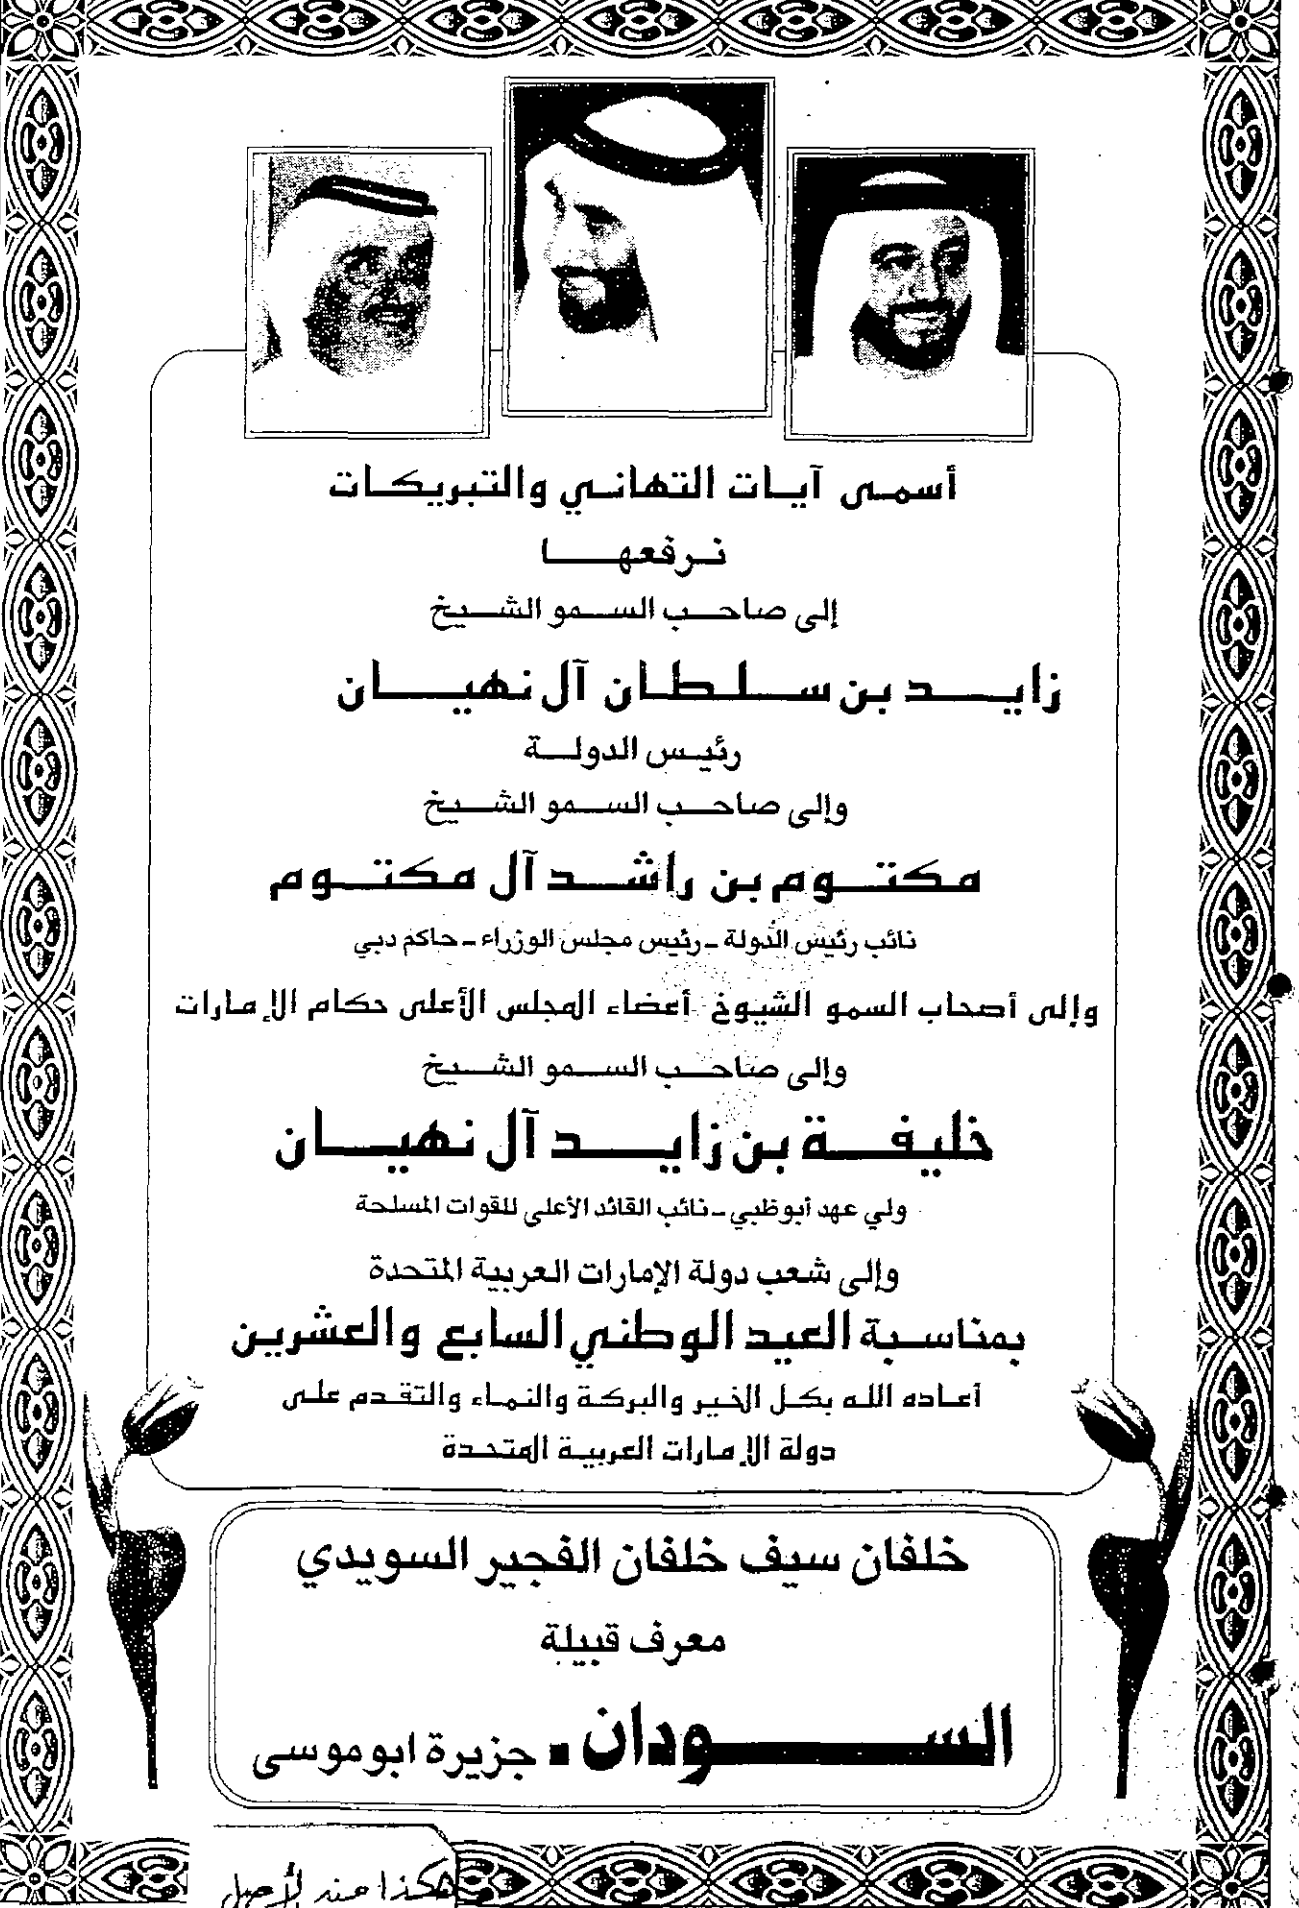 أسمى آيات التهاني والتبريكات
نرفعها
إلى صاحب السمو الشيخ
زايد بن سلطان آل نهيان
رئيس الدولة
وإلى صاحب السمو الشيخ
مكتوم بن راشد آل مكتوم
نائب رئيس الدولة - رئيس مجلس الوزراء - حاكم دبي
وإلى أصحاب السمو الشيوخ أعضاء المجلس الأعلى حكام الإمارات
وإلى صاحب السمو الشيخ
خليفة بن زايد آل نهيان
ولي عهد أبوظبي - نائب القائد الأعلى للقوات المسلحة
وإلى شعب دولة الإمارات العربية المتحدة
بمناسبة العيد الوطني السابع والعشرين
أعاده الله بكل الخير والبركة والنماء والتقدم على
دولة الإمارات العربية المتحدة
خلفان سيف خلفان الفجير السويدي
معرف قبيلة
السودان - جزيرة ابوموسى
هكذا عند الأصل